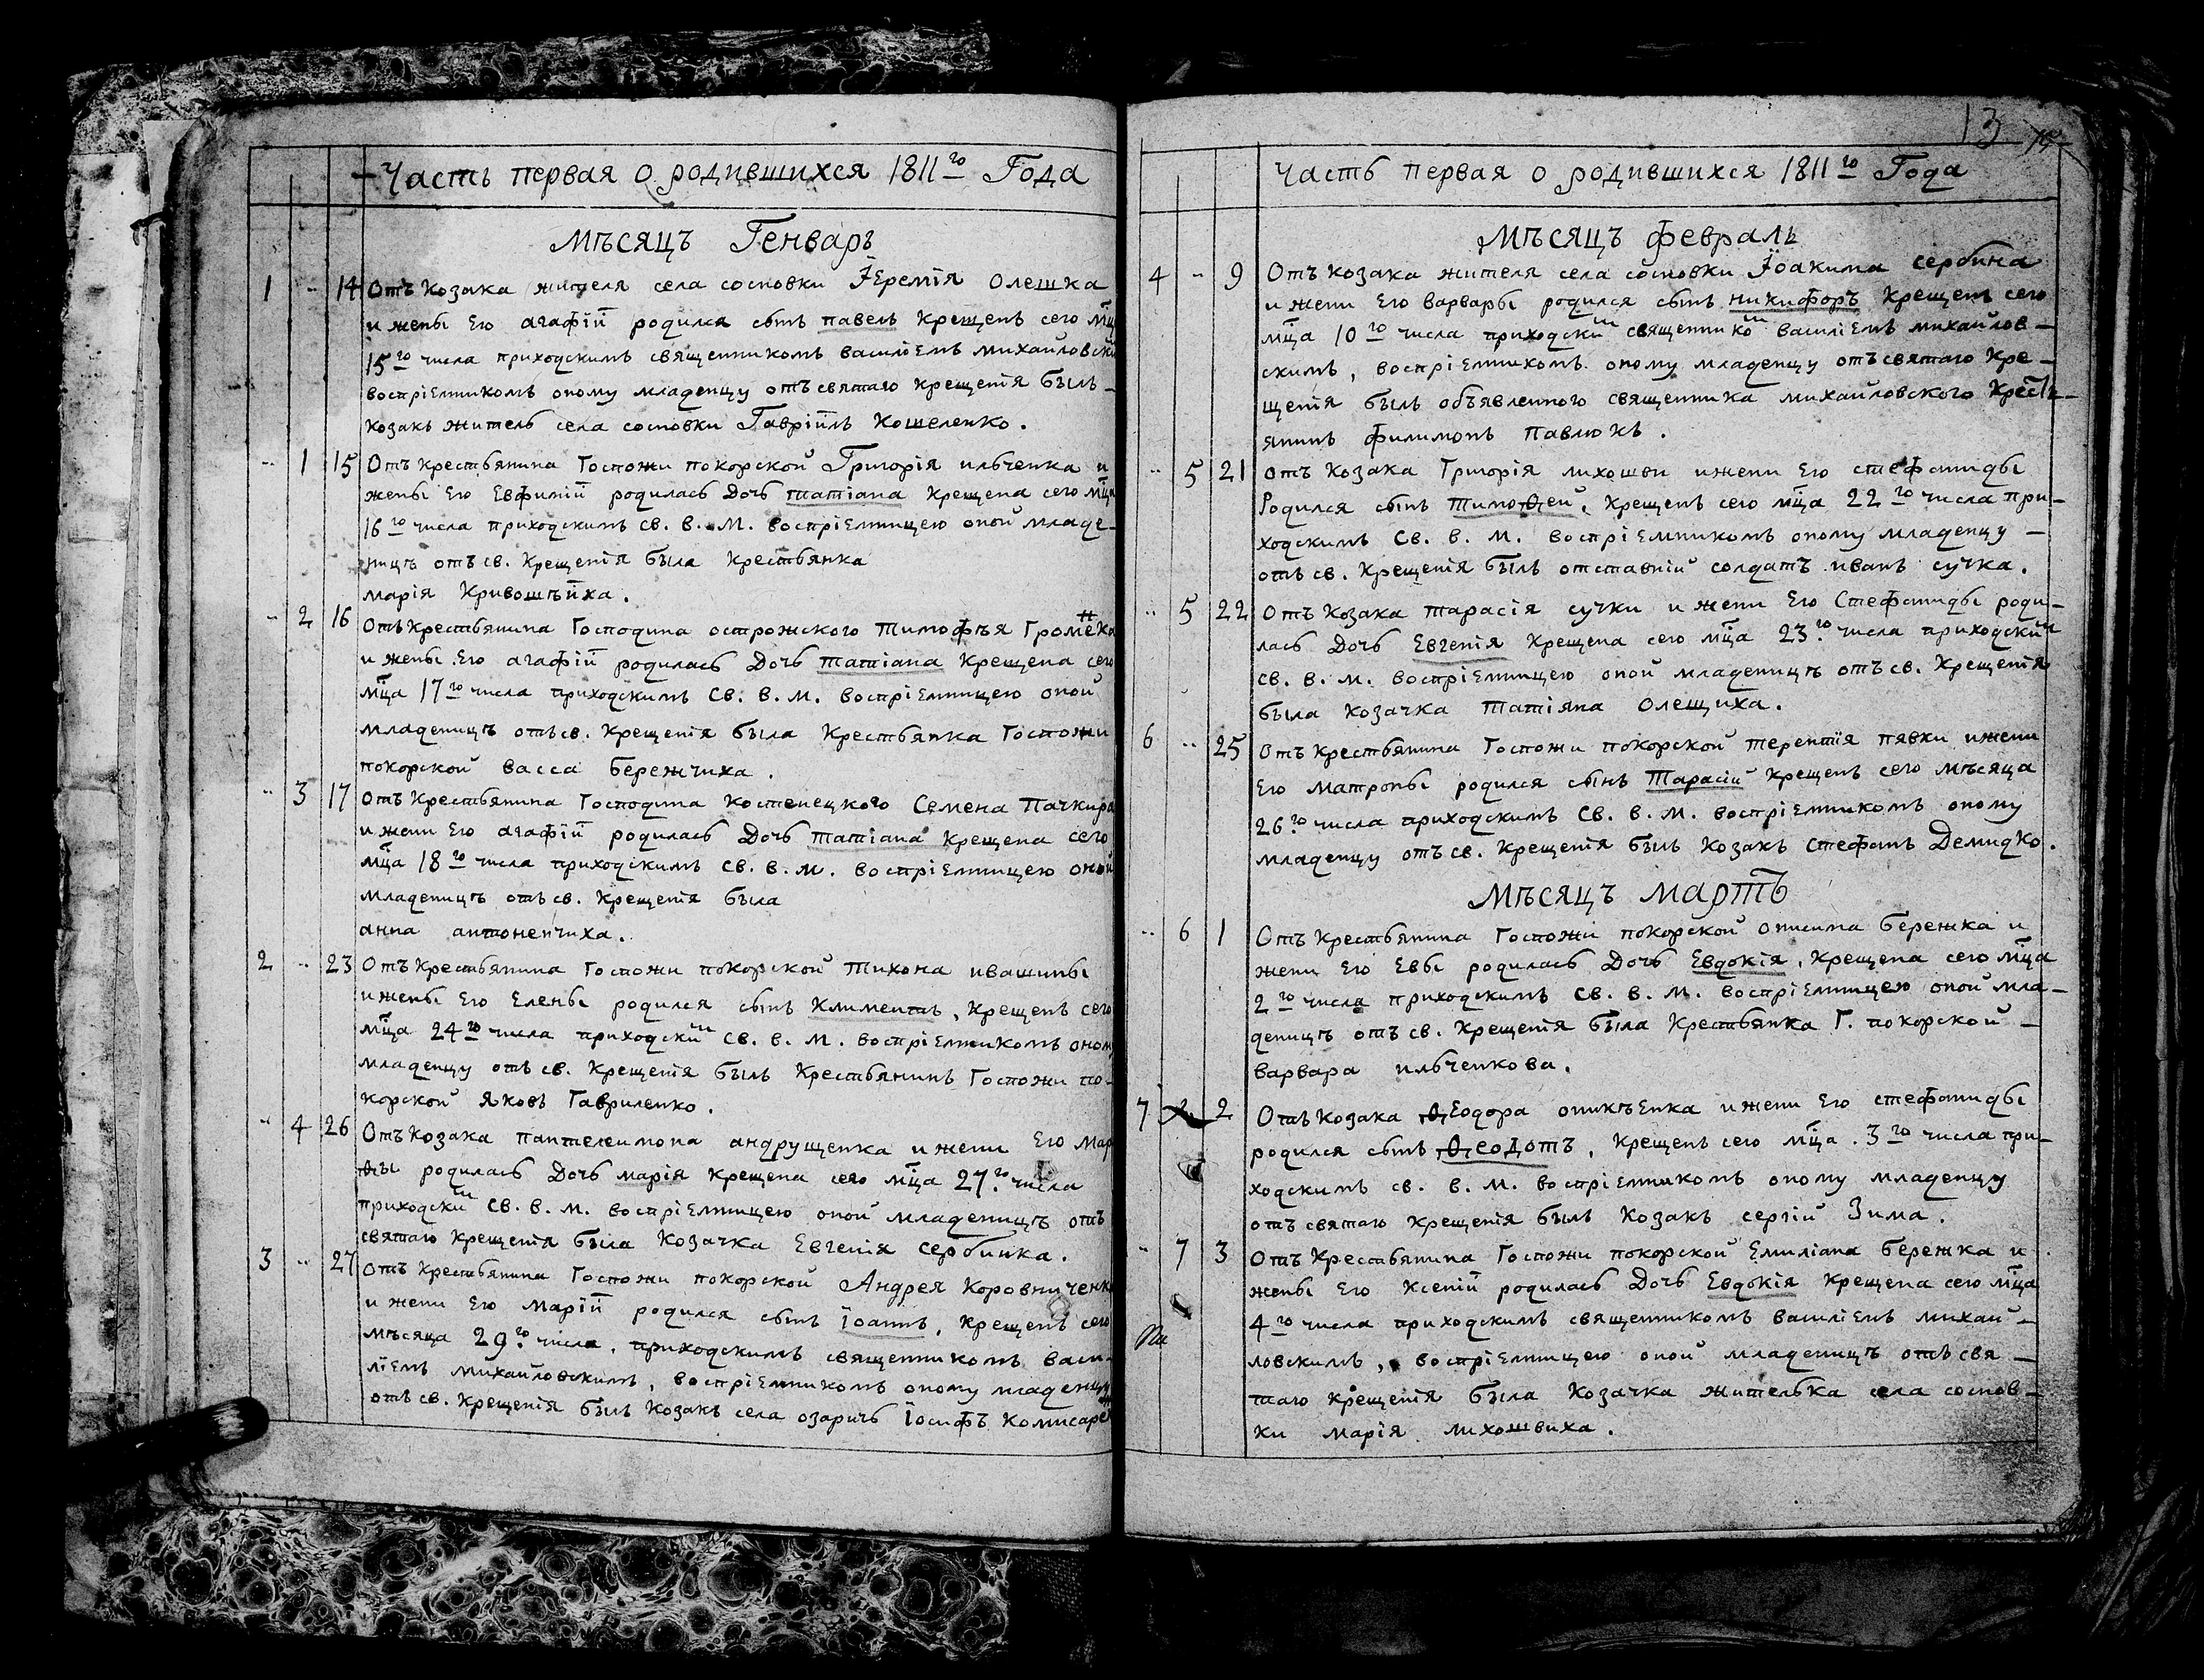 Часть первая о родившихся 1811го Года
Мѣсяцъ Генварь
1 " 14 Отъ козака жителя села сосновки Іеремія Олешка
и жены Его агафіи родился сынъ павелъ крещенъ сего мца
15го числа приходскимъ священникомъ василіемъ михайловски
воспріемникомъ оному младенцу отъ святаго крещенія былъ –
козакъ житель села сосновки Гавріилъ Кошеленко.
" 1 15 Отъ крестьянина Госпожи покорской Григорія ильченка и
жены Его Евфиміи родилась Дочь татіана крещена сего мца
16го числа приходскимъ св. в. М. воспріемницею оной младе-
ницѣ отъ св. крещенія была крестьянка
марія Кривошѣиха.
" 2 16 Отъ крестьянина Господина острожского Тимофѣя Громека
и жены Его агафіи родилась Дочь татіана крещена сего
мца 17го числа приходскимъ св. в. м. воспріемницею оной
младеницѣ отъ св. крещенія была крестьянка Госпожи
покорской васса бережчиха.
" 3 17 Отъ крестьянина Господина костенецкого Семена Пачкира
и жени Его агафіи родилась Дочь татіана крещена сего
мца 18го числа приходскимъ св. в. м. воспріемницею оной
младеницѣ отъ св. крещенія была
анна антоненчиха.
2 " 23 Отъ крестьянина Госпожи покорской тихона ивашины
и жены Его Елены родился сынъ климентъ, крещенъ сего
мца 24го числа приходскимъ св. в. м. воспріемникомъ оному
младенцу отъ св. крещенія былъ крестьянинъ Госпожи по-
корской яковъ Гавриленко.
" 4 26 Отъ козака пантелеимона андрущенка и жени Его мар
ѳы родилась Дочь марія крещена сего мца 27го числа
приходскимъ св. в. м. воспріемницею оной младеницѣ отъ
святаго крещенія была козачка Евгенія сербинка.
3 " 27 Отъ крестьянина Госпожи покорской Андрея Коровниченк
и жени Его маріи родился сынъ іоаннъ, крещенъ сего
мѣсяца 29го числа, приходскимъ священникомъ васи-
ліемъ михайловскимъ, воспріемникомъ оному младенцу
отъ св. крещенія былъ козакъ села озаричь іосифъ комисаре
13
Часть первая о родившихся 1811го Года
Мѣсяцъ февраль
4 " 9 Отъ козака жителя села сосновки Іоакима сербина
и жени Его варвары родился сынъ никифоръ крещенъ сего
мца 10го числа приходскимъ священникомъ василіемъ михайлов –
скимъ, воспріемникомъ оному младенцу отъ святаго кре –
щенія былъ объявленного священника михайловского кресть –
янинъ филимонъ павлюкъ.
" 5 21 отъ козака Григорія лихошви и жени Его стефаниды
Родился сынъ тимоѳей, крещенъ сего мца 22го числа при –
ходскимъ св. в. м. воспріемникомъ оному младенцу –
отъ св. крещенія былъ отставній солдатъ иванъ сучка.
" 5 22 Отъ козака тарасія сучки и жени Его Стефаниды роди –
лась Дочь Евгенія крещена сего мца 23го числа приходскимъ
св. в. м. воспріемницею оной младеницѣ отъ св. крещенія
была козачка татіяна олещиха.
6 " 25 Отъ крестьянина Госпожи покорской терентія пявки и жени
Его матроны родился сынъ Тарасій крещенъ сего мѣсяца
26го числа приходскимъ св. в. м. воспріемникомъ оному
младенцу отъ св. крещенія былъ козакъ стефанъ Демидко.
Мѣсяцъ Мартъ
" 6 1 Отъ крестьянина Госпожи покорской онисима бережка и
жени Его Евы родилась Дочь Евдокія, крещена сего мца
2го числа приходскимъ св. в. м. воспріемницею оной мла –
деницѣ отъ св. крещенія была крестьянка Г. покорской –
варвара ильченкова.
7 2 Отъ козака Ѳеодора оникѣенка и жени Его стефаниды
родился сынъ Ѳеодотъ, крещенъ сего мца 3го числа при –
ходскимъ св. в. м. воспріемникомъ оному младенцу
отъ святаго крещенія былъ козакъ сергій Зима.
" 7 3 Отъ крестьянина Госпожи покорской Емиліана бережка и
жены Его ксеніи родилась Дочь Евдокія крещена сего мца
4го числа приходскимъ священникомъ василіемъ михай –
ловскимъ, воспріемницею оной младеницѣ отъ свя –
таго крещенія была козачка жителька села соснов –
ки марія лихошвиха.